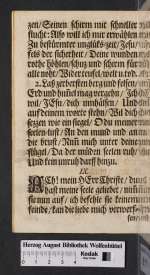 zen/Seinen schirm mit schneller
flucht: Also will ich mir erwählen
Zu bestürmter unglücks-zeit/Jesu/
fels der sicherheit/ Deine wunden
rothe höhlen/schutz und schirm für
alle noht/ Wider teufel/welt u. tod.
2. Laß zerbersten berg und felsen/
Erd und himmel mag vergehn/
will/JEsu/ dich umhälsen/ Und
auf deinem worte stehn/ Wil dich
setzen wie ein siegel/ O du
seelen-lust/ An den mund und an
die brust/ Nim mich unter deine
flügel/ Da der müden seelen ruh/
Und kein unruh darff hinzu.
IX.
ACh! mein HErr Christe/ du
hast meine seele geliebet/
sie nun auf/ ich befehle sie keinem
feinde/ kan die hiebe mich
Herzog August Bibliothek Wolfenbüttel